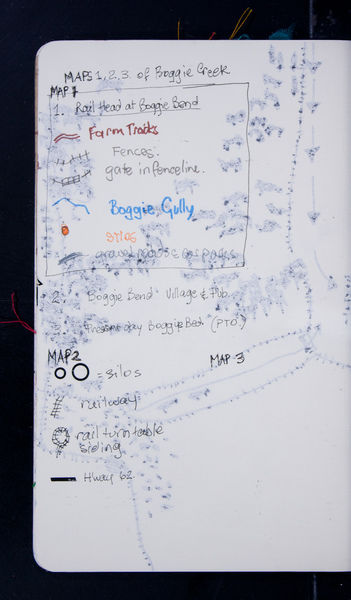 MAPS 1, 2, 3. of Boggie Creek
MAP 1
1. Rail Head at Boggie Bend
Farm Tracks
Fences.
gate in fenceline.
Boggie Gully
silos
2. Boggie Bend Village & Pub.
3. Present day Boggie Bend (PTO)
MAP 2
MAP 3
= silos
railway
rail turntable
siding
Hway 62.